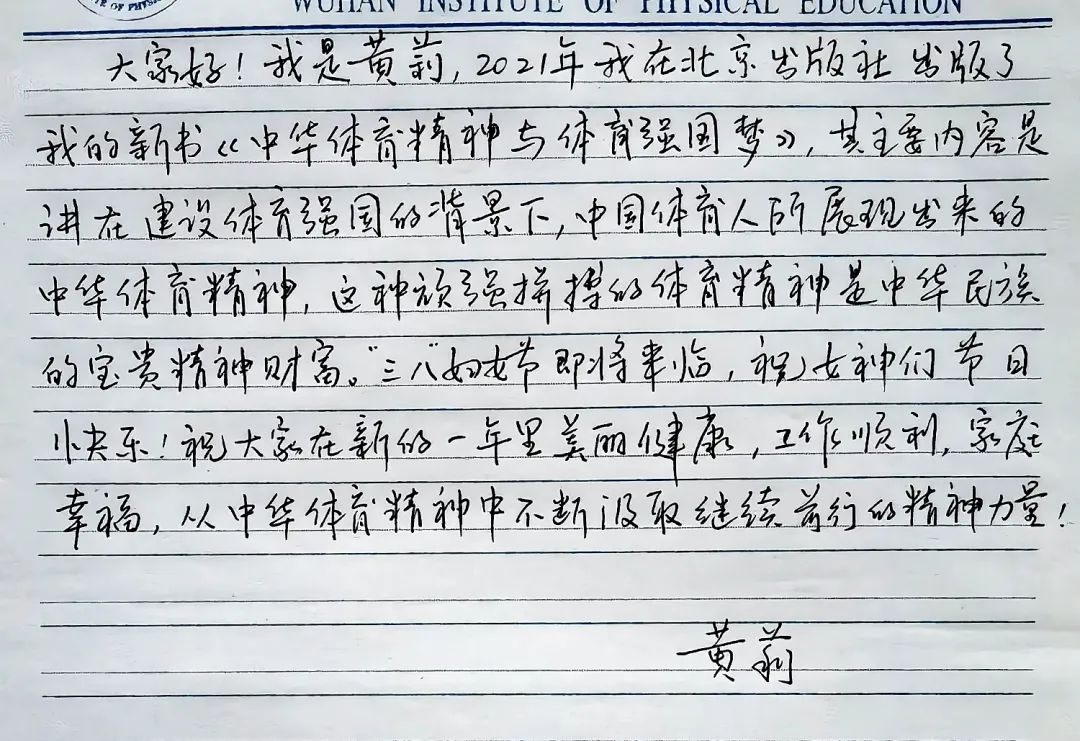 WUHAN INSTITUTE OF PHYSICAL EDUCATION
大家好！我是黄莉，2021年我在北京出版社出版了
我的新书《中华体育精神与体育强国梦》，其主要内容是
讲在建设体育强国的背景下，中国体育人所展现出来的
中华体育精神，这种顽强拼搏的体育精神是中华民族
的宝贵精神财富。"三八"妇女节即将来临，祝女神们节日
快乐！祝大家在新的一年里美丽健康，工作顺利，家庭
幸福，从中华体育精神中不断汲取继续前行的精神力量！
黄莉